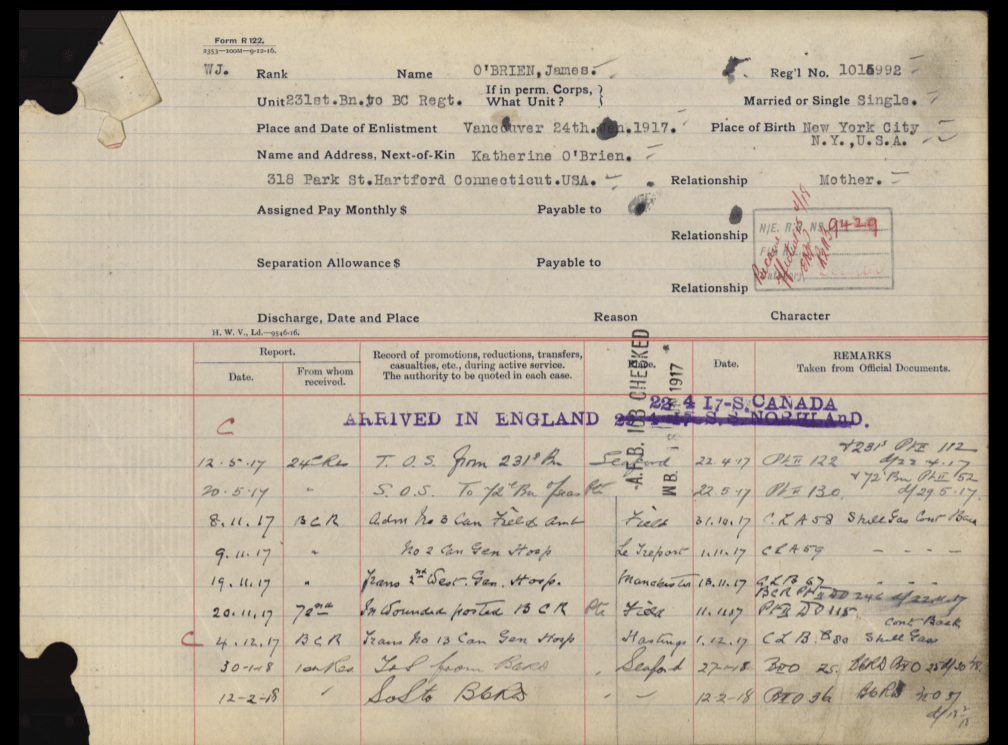 Form R 122.
2353—100M—9-12-16.
WJ. Rank Name O'BRIEN, James. Reg'l No. 1015992
Unit 231st.Bn.to BC Regt. If in perm. Corps, What Unit? Married or Single Single.
Place and Date of Enlistment Vancouver 24th. Jan.1917. Place of Birth New York City
N.Y.,U.S.A.
Name and Address, Next-of-Kin Katherine O'Brien.
318 Park St.Hartford Connecticut.USA. Relationship Mother.
Assigned Pay Monthly $ Payable to
Relationship
N/E. R. NS 9429
Separation Allowance $ Payable to
Relationship
Discharge, Date and Place Reason Character
H. W. V., Ld.—9546-16.
Report. Record of promotions, reductions, transfers, casualties, etc., during active service. The authority to be quoted in each case. Date. REMARKS
Date. From whom received. Taken from Official Documents.
A.F.B. 103 CHECKED
W.B. 1917
22 4 17-S.S. CANADA
C ARRIVED IN ENGLAND 22 4 17 S.S. NORTHLAND.
+231st Pt II 112
12.5.17 24th Res T.O.S. from 231st Bn Seaford 22.4.17 Pt II 122 d/22.4.17
+72nd Bn Pt II 52
20.5.17 " S.O.S. To 72nd Bn Pte 22.5.17 Pt II 130 d/29.5.17
8.11.17 B C R Adm No 3 Can Field Amb Field 31.10.17 C.L A 58 Shell Gas Cont Back
9.11.17 " No 2 Can Gen Hosp Le Treport 1.11.17 C L A 59 - - -
19.11.17 " Trans 2nd West. Gen. Hosp. Manchester 13.11.17 C L B 67 - - -
BCR Pt II DO 246 d/22.11.17
20.11.17 72nd In Wounded posted B C R Pte Field 11.11.17 Pt II DO 115
Cont Back
C 4.12.17 B C R Trans No 13 Can Gen Hosp Hastings 1.12.17 C L B 80 Shell Gas
30-1-18 1st Res ToS from BCRD Seaford 27-1-18 BIIO 25 BCRD BIIO 25 d/30/1/18
12-2-18 " SoS to BCRD " " 12-2-18 BIIO 36 BCRD